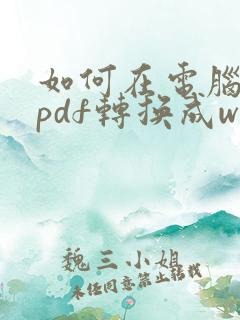 如何在電腦
pdf轉換成w
魏三小姐
未任同意禁止轉載